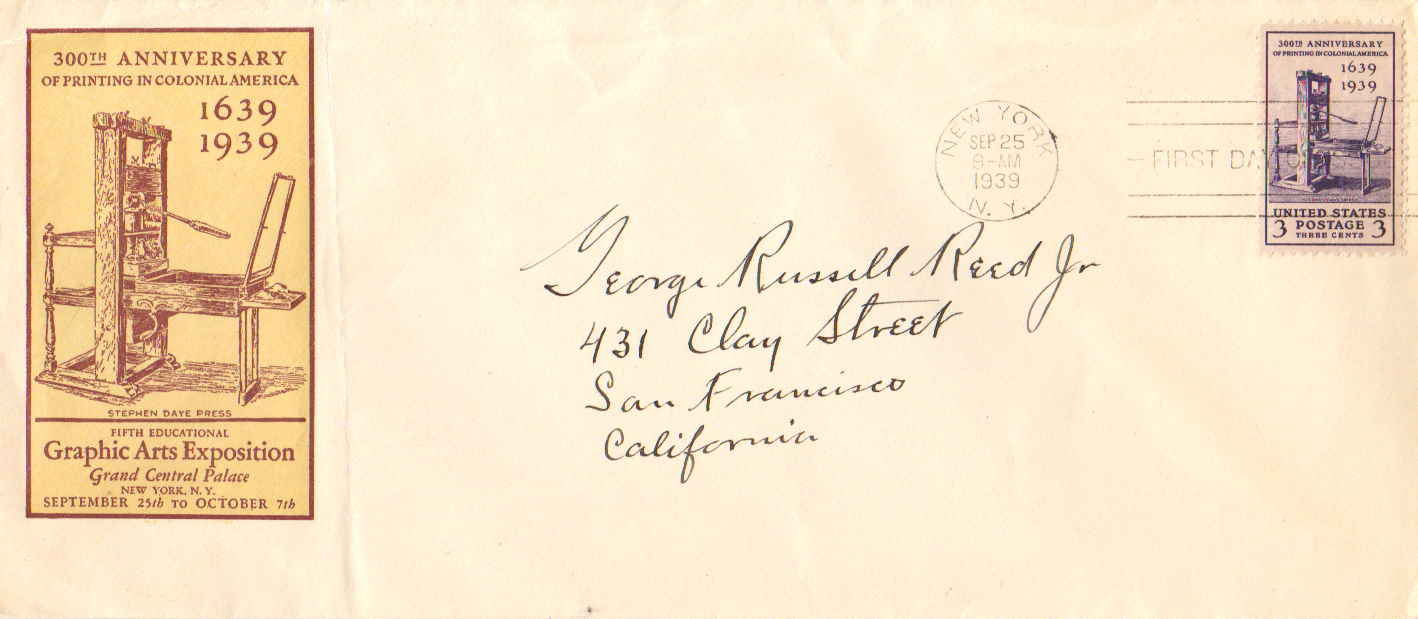 300TH ANNIVERSARY
OF PRINTING IN COLONIAL AMERICA
1639
1939
STEPHEN DAYE PRESS
FIFTH EDUCATIONAL
Graphic Arts Exposition
Grand Central Palace
NEW YORK, N. Y.
SEPTEMBER 25th TO OCTOBER 7th
NEW YORK
SEP 25
9-AM
1939
N. Y.
FIRST DAY OF
300TH ANNIVERSARY
OF PRINTING IN COLONIAL AMERICA
1639
1939
UNITED STATES
3 POSTAGE 3
THREE CENTS
George Russell Reed Jr
431 Clay Street
San Francisco
California